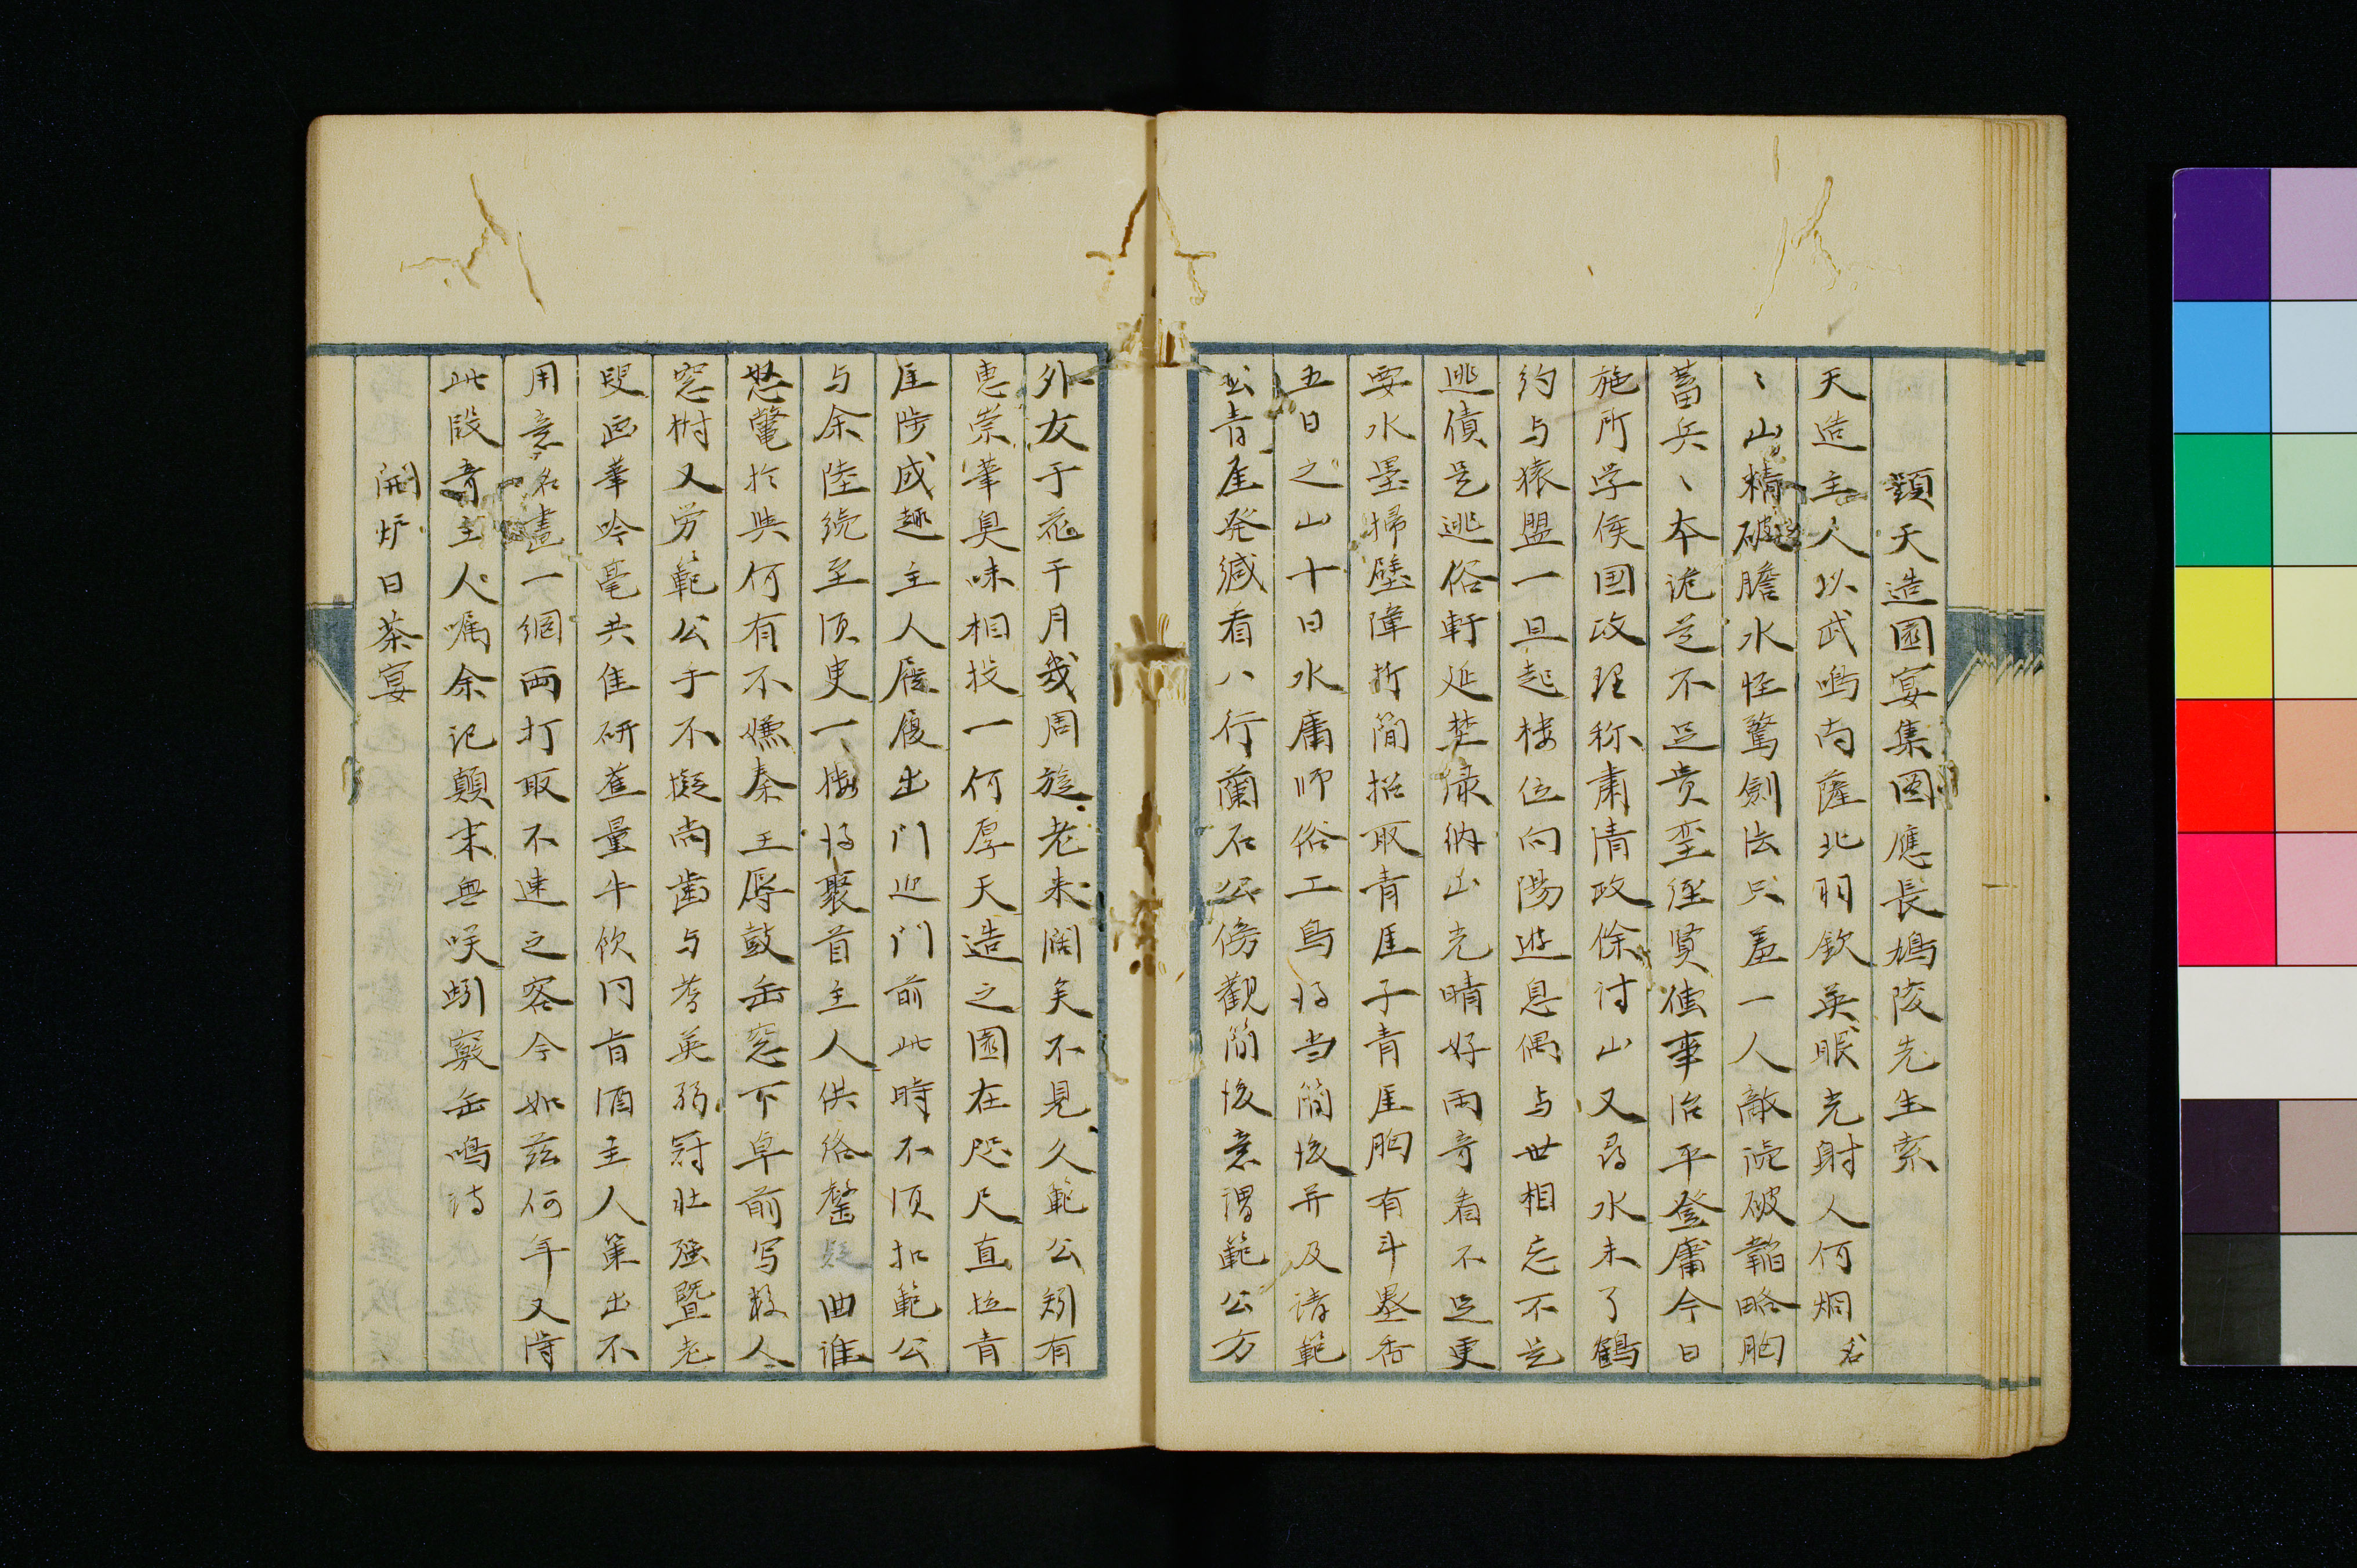 題天造園宴集図應長鳩陵先生索
天造主人以武鳴南薩北羽欽英眼光射人何炯名
〻山精破膽水怪驚劍法只羞一人敵読破韜略胸
蓄兵〻本詭是不足貴蛮経賢傳事治平登庸今日
施所学侯国政理称肅清政餘討山又尋水未了鶴
約与猿盟一旦起楼位向陽遊息偶与世相忘不是
逃債是逃俗軒延楚緑納山光晴好雨奇看不足更
要水墨掃壁障折簡招取青厓子青厓胸有斗墨香
五日之山十日水庸師俗工烏得当簡後并及請範
公青厓発緘看八行蘭石公傍観簡後意謂範公方
外友于花于月我周旋老来闊矣不見久範公矧有
恵崇筆臭味相投一何厚天造之園在咫尺直拉青
厓陟成趣主人屣履出門迎門前此時不須扣範公
与余陸続至須臾一楼好聚首主人供給鑿 曲誰
怒 於 何有不嫌秦王辱鼓缶窓下卓前写数人
窓樹又労範公手不擬尚歯与耆英弱冠壮強暨老
叟画筆吟毫共隹研 量牛飲同旨酒主人筆出不
用意名畫一網両打取不速之客今如茲何年又得
此段奇主人嘱余記顛末無咲蚓竅缶鳴詩
開炉日茶宴